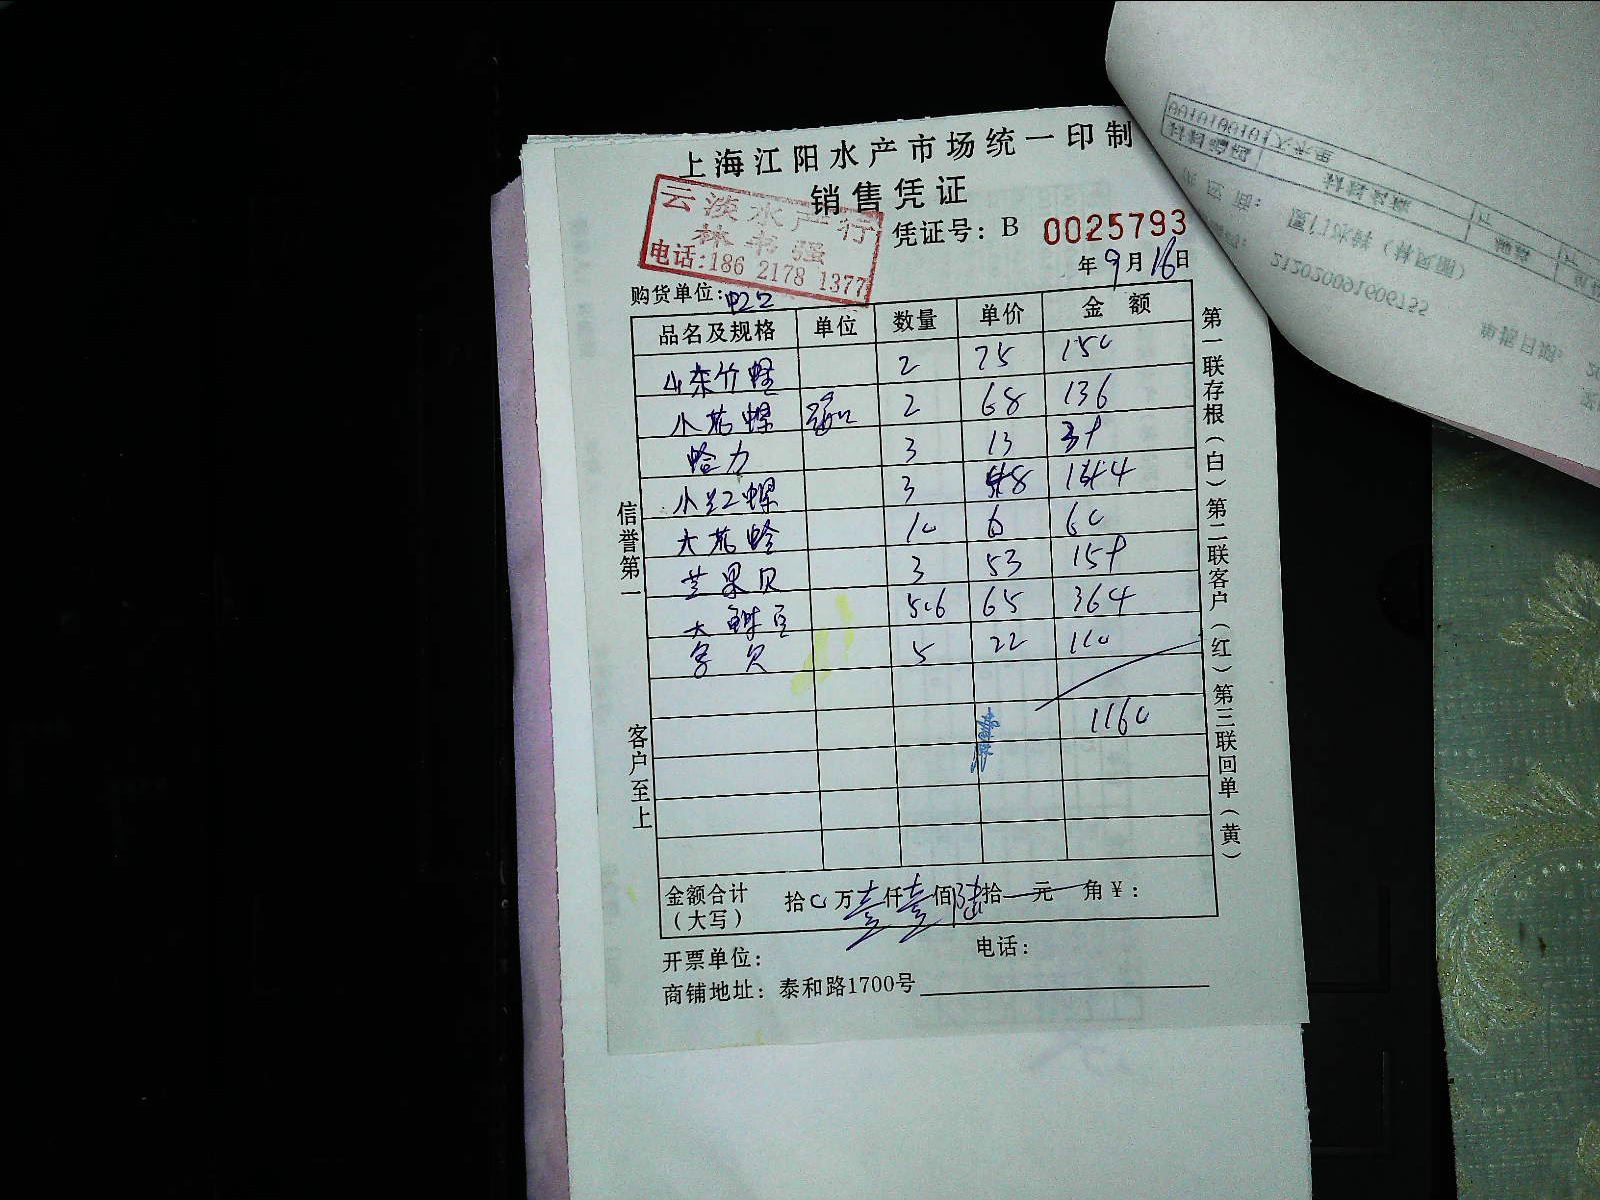 上海江阳水产市场统一印制
销售凭证
云淡水产行
林书强
电话:186 2178 1377
凭证号: B 0025793
年9月16日
购货单位:
品名及规格 单位 数量 单价 金额
山东竹蛏 2 75 150
小花螺 2 68 136
蛤力 3 13 39
小红螺 3 48 144
大花蛤 10 6 60
芒果贝 3 53 159
大鲜豆 5.6 65 364
5 22 110
1160
金额合计(大写) 拾0万壹仟壹佰陆拾一元 角¥:
开票单位: 电话:
商铺地址: 泰和路1700号
信誉第一
客户至上
第一联存根(白)第二联客户(红)第三联回单(黄)
212020091606755